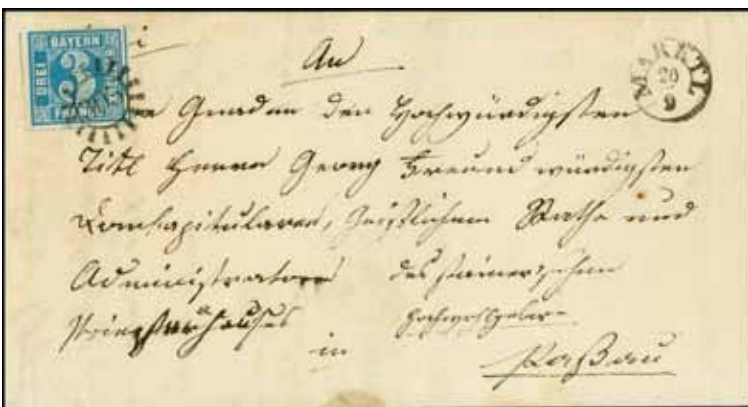 BAYERN
DREI 3
FRANCO
An
MARKTL
20
9
Gnaden den Hochwürdigsten
Titl Herrn Georg Freund würdigsten
Domkapitularen, Geistlichem Rathe und
Administratore des
Priesterhauses
in
Paßau